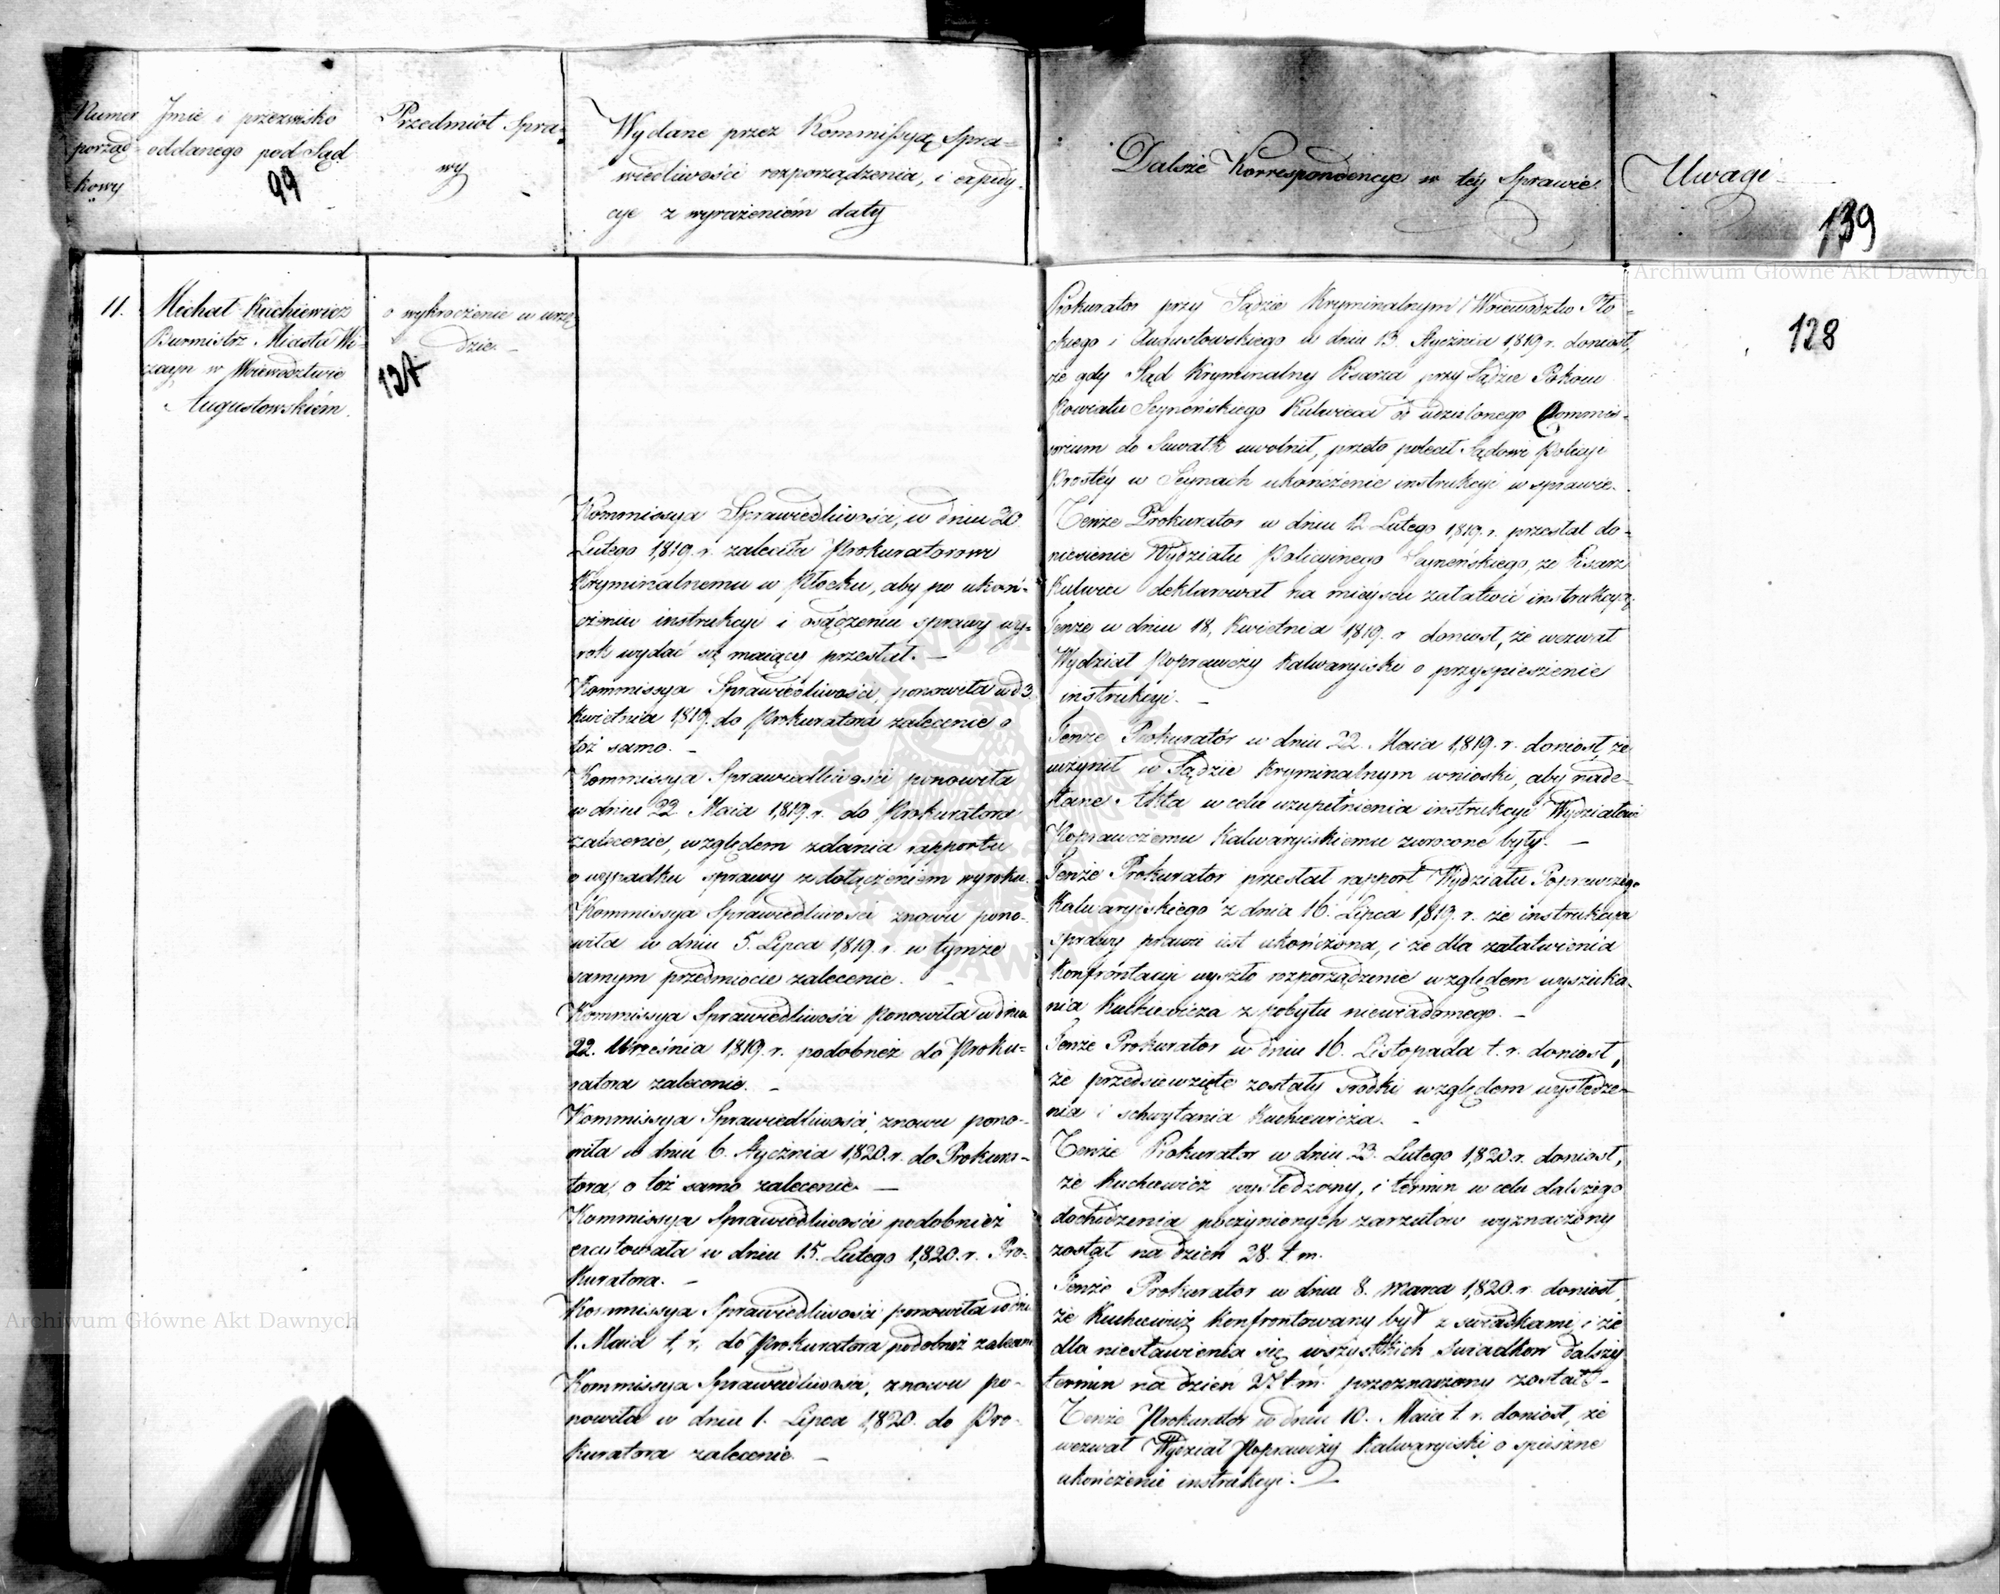 Numer
porząd-
kowy
Jmie i przezwisko
oddanego pod Sąd
99
Przedmiot Spra-
wy
Wydane przez Kommissyą Spra-
wiedliwości rozporządzenia, i expedy-
cye z wyrażeniem daty
Dalsze Korrespondencye w tey Sprawie.
Uwagi
139
11.
Michał Kuckiewicz
Burmistrz Miasta Wi-
żayn w Woiewództwie
Augustowskiém.
o wykroczenie w urzę-
dzie. -
127
Kommissya Sprawiedliwości, w dniu 20
Lutego 1819. r. zaleciła Prokuratorowi
Kryminalnemu w Płocku, aby po ukoń-
czeniu instrukcyi i osądzeniu sprawy wy-
rok wydać się maiący przesłał. -
Kommissya Sprawiedliwości, ponowiła w d 3.
Kwietnia 1819. do Prokuratora zalecenie o
toż samo. -
Kommissya Sprawiedliwości ponowiła
w dniu 22 Maia 1819. r. do Prokuratora
zalecenie, względem zdania rapportu
o wypadku sprawy z dołączeniem wyroku.
Kommissya Sprawiedliwości znowu pono-
wiła w dniu 5. Lipca 1819. r. w tymże
samym przedmiocie zalecenie. -
Kommissya Sprawiedliwości ponowiła w dniu
22. Września 1819. r. podobneż do Proku-
ratora zalecenie. -
Kommissya Sprawiedliwości, znowu pono-
wiła w dniu 6. Stycznia 1820. r. do Prokura-
tora, o toż samo zalecenie. -
Kommissya Sprawiedliwości podobnież
excitowała w dniu 15. Lutego 1820. r. Pro-
kuratora. -
Kommissya Sprawiedliwości ponowiła w dniu
1. Maia t. r. do Prokuratora podobneż zalecenie
Kommissya Sprawiedliwości, znowu po-
nowiła w dniu 1. Lipca 1820. do Pro-
kuratora zalecenie. -
Prokurator przy Sądzie Kryminalnym Woiewództw Pło-
ckiego i Augustowskiego w dniu 13. Stycznia 1819 r. doniosł,
że gdy Sąd Kryminalny Pisarza przy Sądzie Pokoiu
Powiatu Seyneńskiego Kulwieca od udzielonego Commis-
sorium do Suwałk uwolnił, przeto polecił Sądowi Policyi
Prostéy w Seynach ukończenie instrukcyi w sprawie.
Tenże Prokurator w dniu 12 Lutego 1819. r. przesłał do-
niesienie Wydziału Policyinego Seyneńskiego, że Pisarz
Kulwiec deklarował na mieyscu załatwić instrukcyą.
Tenże w dniu 18, Kwietnia 1819. r doniosł, że wezwał
Wydział Poprawczy Kalwaryiski o przyspieszenie
instrukcyi. -
Tenże Prokuratór w dniu 22. Maia 1819. r. doniosł, że
uczynił w Sądzie Kryminalnym wnioski, aby nade-
słane Akta w celu uzupełnienia instrukcyi Wydziałowi
Poprawczemu Kalwaryiskiemu zwrocone były. -
Tenże Prokurator przesłał rapport Wydziału Poprawczego
Kalwaryiskiego z dnia 16. Lipca 1819. r. że instrukcya
sprawy prawie iest ukończona, i że dla załatwienia
Konfrontacyi wyszło rozporządzenie względem wyszuka-
nia Kuckiewicza z pobytu niewiadomego. -
Tenże Prokurator w dniu 16. Listopada t. r. doniosł,
że przedsiewzięte zostały srodki względem wyśledze-
nia i schwytania Kuckiewicza. -
Tenże Prokurator w dniu 23. Lutego 1820. r. doniosł,
że Kuckiewicz wyśledzony, i termin w celu dalszego
dochodzenia poczynionych zarzutow wyznaczony
został na dzień 28. t. m.
Tenże Prokurator w dniu 8. Marca 1820. r. doniosł
że Kuckiewicz Konfrontowany był z swiadkami i że
dla niestawienia się wszystkich swiadków dalszy
termin na dzień 27. t. m. przeznaczony został. -
Tenże Prokurator w dniu 10. Maia t. r. doniosł, że
wezwał Wydział Poprawczy Kalwaryiski o spieszne
ukończenie instrukcyi. -
128
Archiwum Główne Akt Dawnych
Archiwum Główne Akt Dawnych